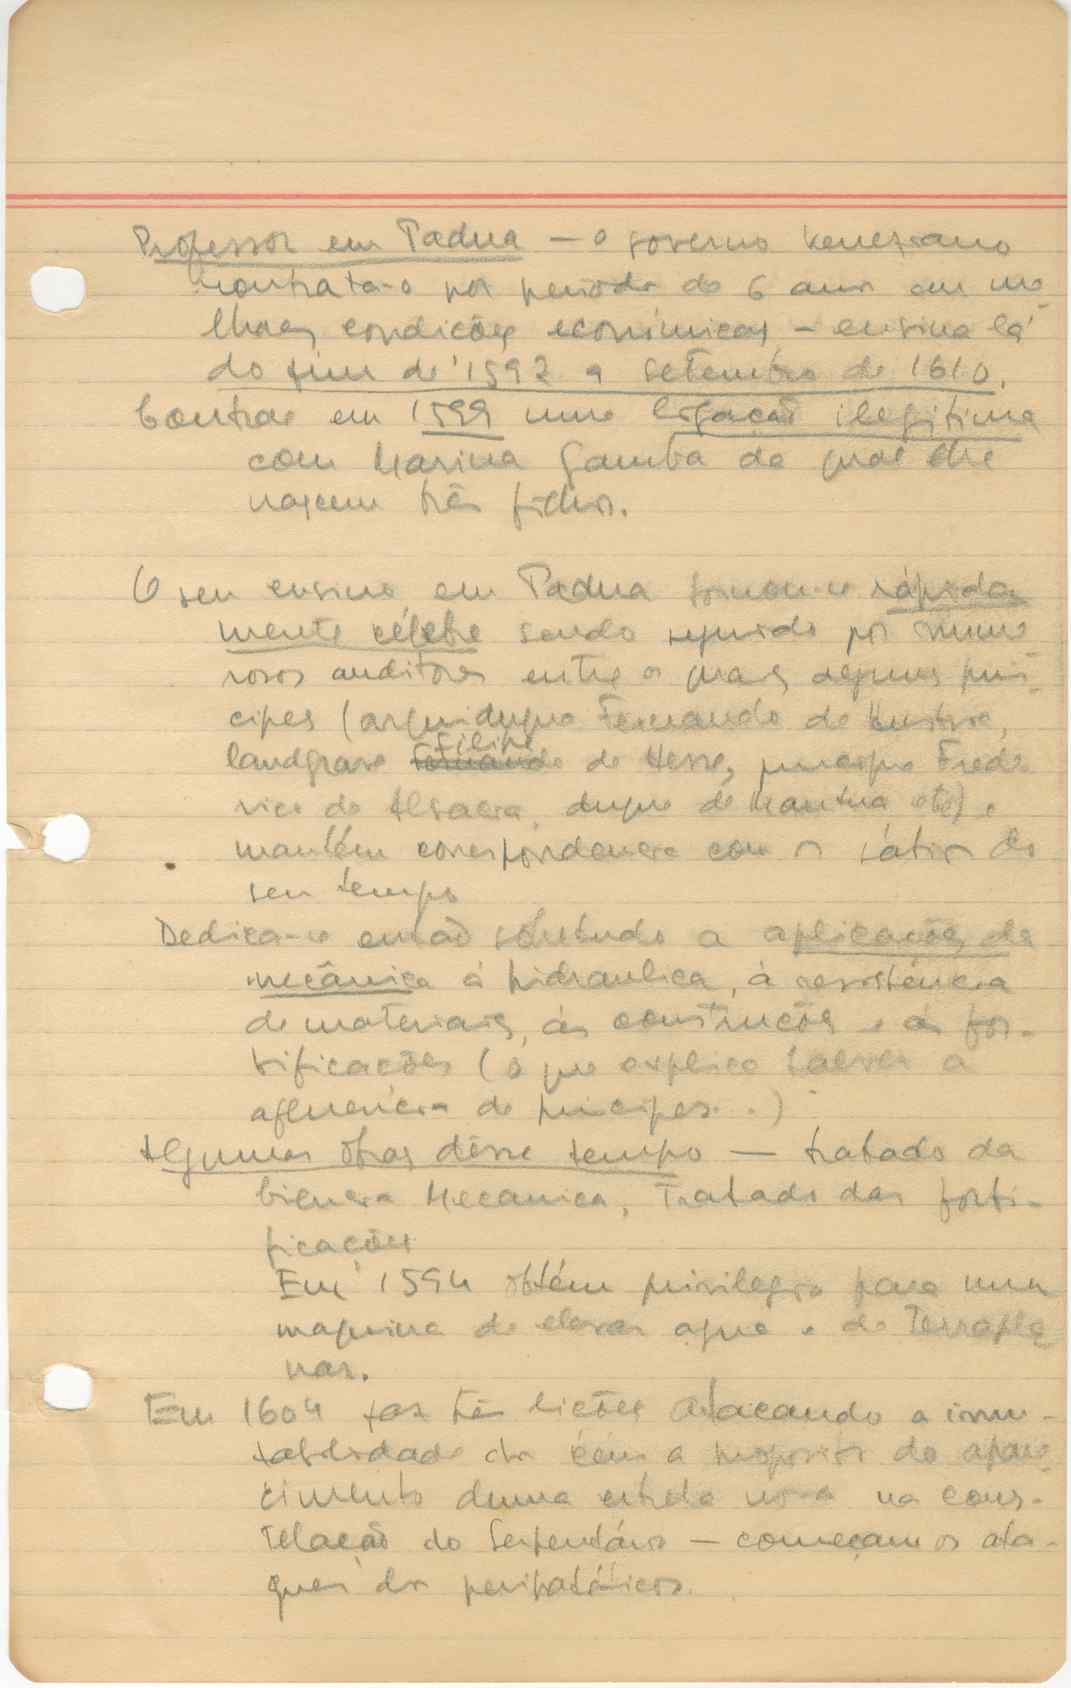 Professor em Padua — o governo veneziano
contrata-o por periodo de 6 anos em me-
lhores condições económicas — ensina lá
do fim de 1592 a setembro de 1610.
Contrae em 1599 uma ligação ilegitima
com Marina Gamba da qual lhe
nascem três filhos.
O seu ensino em Padua tornou-se rápida-
mente célebre sendo seguido por nume-
rosos auditores entre os quais alguns prin-
cipes (arquiduque Fernando de Austria,
landgrave Filipe de Hesse, principe Frede-
rico de Alsacia, duque de Mantua etc) e
mantém correspondencia com os sábios do
seu tempo
Dedica-se então sobretudo a aplicações da
mecânica á hidraulica, á resistência
de materiais, ás construções e ás for-
tificações (o que explica talvez a
afluencia de principes..)
Algumas obras dêsse tempo — tratado da
Ciencia Mecanica, Tratado das forti-
ficações
Em 1594 obtém privilegio para uma
maquina de elevar agua e de Terrapla-
nar.
Em 1604 faz três lições atacando a imu-
tabilidade dos céus a proposito do apare-
cimento duma estrela nova na cons-
telação do Serpentário — começam os ata-
ques dos peripatéticos.